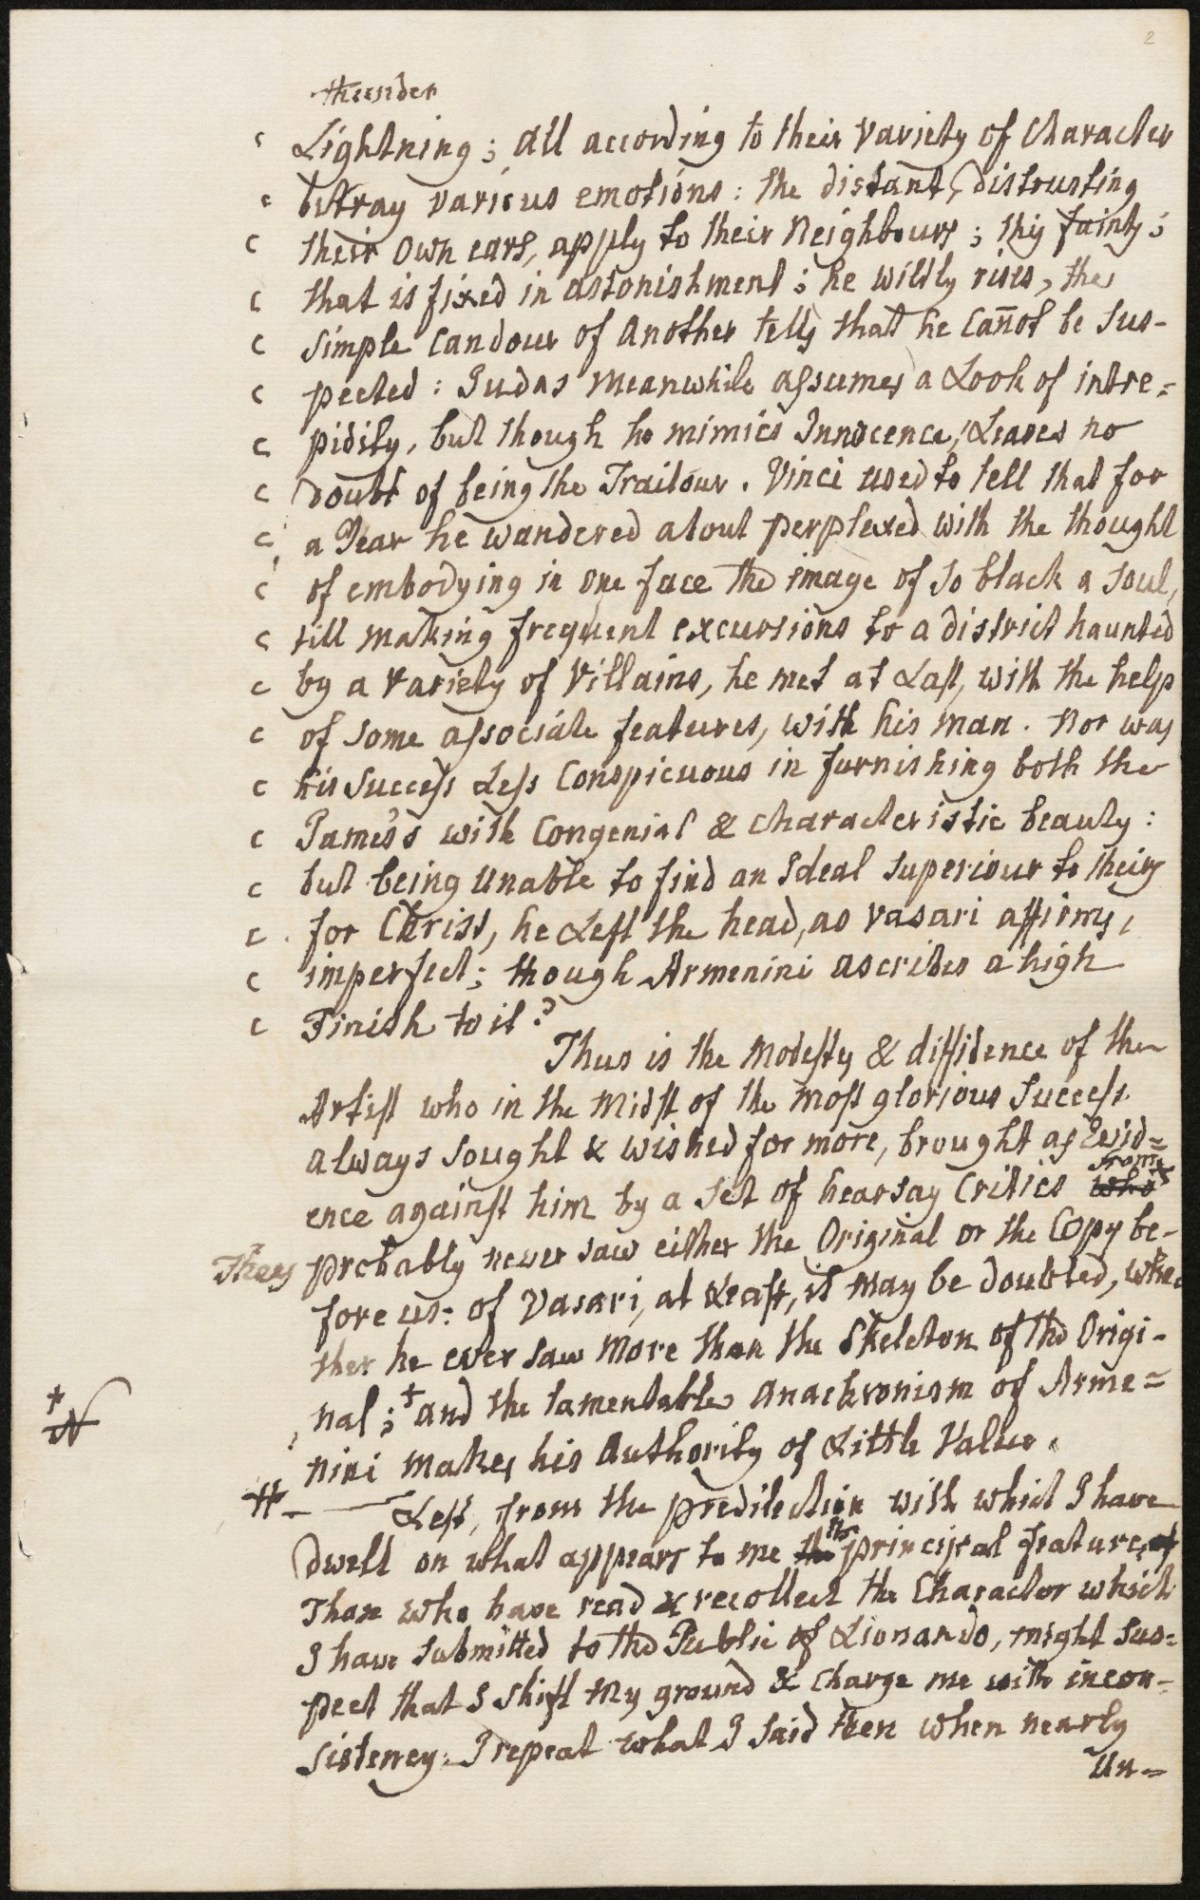 2
thunder
‘ Lightning; all according to their variety of Character
‘ betray various emotions: the distant, distrusting
‘ their own ears, apply to their Neighbours; this faints;
‘ that is fixed in astonishment; he wildly rises, the
‘ simple Candour of Another tells that he Cañot be sus-
‘ pected: Judas meanwhile assumes a Look of intre=
‘ pidity, but though he mimics Innocence, Leaves no
‘ doubt of being the Traitour. Vinci used to tell that for
‘ a Year he wandered about perplexed with the thought
‘ of embodying in one face the image of so black a soul,
‘ till making frequent excursions to a district haunted
‘ by a variety of Villains, he met at Last, with the help
‘ of some associate features, with his man. Nor was
‘ his success Less Conspicuous in furnishing both the
‘ James's with Congenial & characteristic beauty:
‘ but being unable to find an Ideal superiour to theirs
‘ for Christ, he Left the head, as Vasari affirms,
‘ imperfect; though Armenini ascribes a high
‘ Finish to it.’
Thus is the Modesty & diffidence of the
Artist who in the Midst of the most glorious success
always sought & wished for more, brought as Evid=
ence against him by a set of hearsay Critics who
from
They probably never saw either the Original or the Copy be-
fore us: of Vasari, at Least, it may be doubted, whe
ther he ever saw More than the Skeleton of the Origi-
nal; + and the lamentable anachronism of Arme=
+
N
nini makes his Authority of Little Value.
# — Lest, from the predilection with which I have
dwelt on what appears to me the the principal features of
Those who have read & recollect the Character which
I have submitted to the Public of Lionardo, might sus=
pect that I shift my ground & charge me with incon-
sistency. I repeat what I said then when nearly
un=